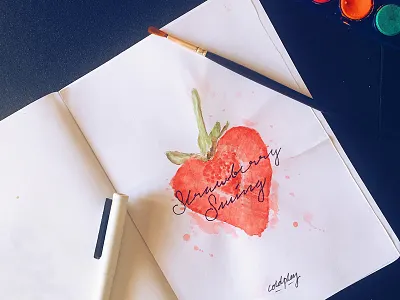 Strawberry
Swing
coldplay